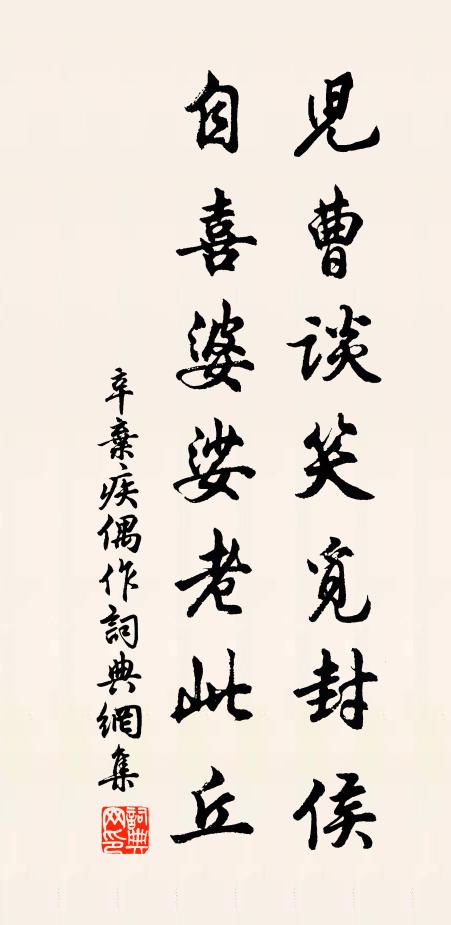 兒曹談笑覓封侯
自喜婆娑老此丘
辛棄疾偶作詞典網集
詞典網印